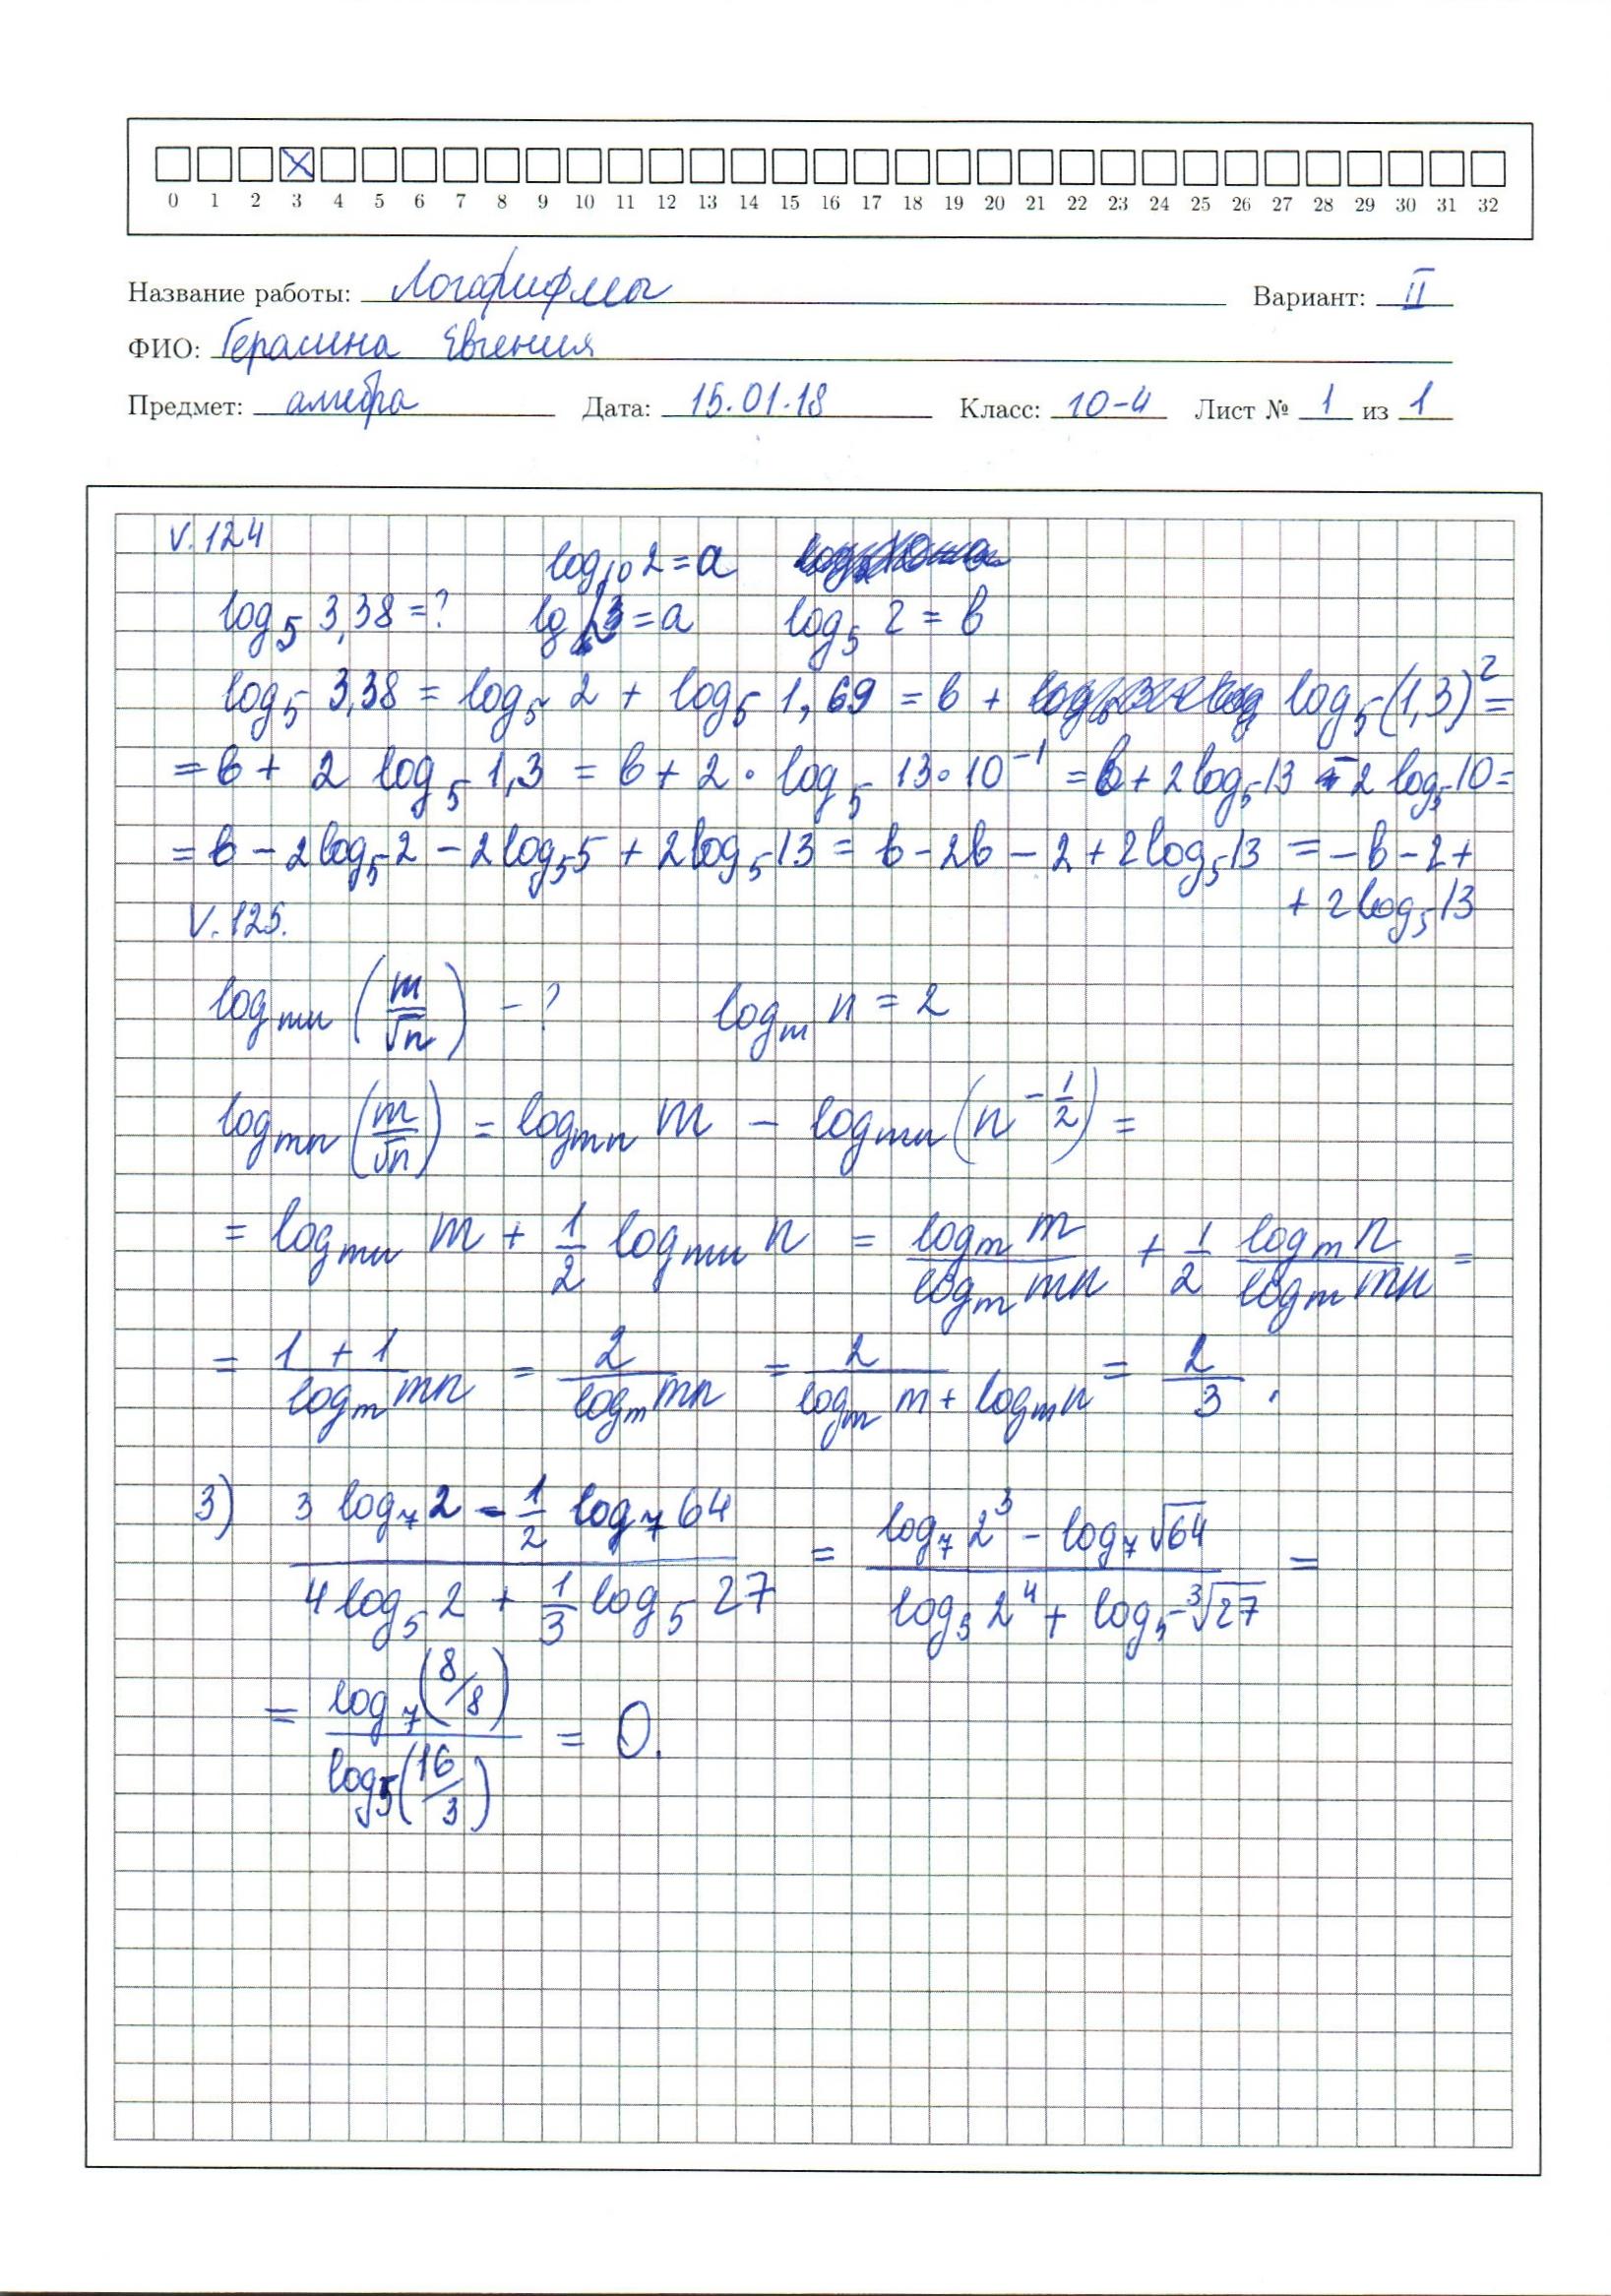 0 1 2 3 4 5 6 7 8 9 10 11 12 13 14 15 16 17 18 19 20 21 22 23 24 25 26 27 28 29 30 31 32
Название работы: Логарифмы Вариант: II
ФИО: Герасина Евгения
Предмет: алгебра Дата: 15.01.18 Класс: 10-4 Лист № 1 из 1
V.124
log₁₀ 2 = a
log₅ 3,38 = ? lg 13 = a log₅ 2 = b
log₅ 3,38 = log₅ 2 + log₅ 1,69 = b + log₅(1,3)² =
= b + 2 log₅ 1,3 = b + 2 · log₅ 13 · 10⁻¹ = b + 2 log₅ 13 - 2 log₅ 10 =
= b - 2 log₅ 2 - 2 log₅ 5 + 2 log₅ 13 = b - 2b - 2 + 2 log₅ 13 = - b - 2 +
+ 2 log₅ 13
V.125.
log_mn (m/√n) - ? log_m n = 2
log_mn (m/√n) = log_mn m - log_mn (n^(-1/2)) =
= log_mn m + 1/2 log_mn n = (log_m m)/(log_m mn) + 1/2 (log_m n)/(log_m mn) =
= (1 + 1)/(log_m mn) = 2/(log_m mn) = 2/(log_m m + log_m n) = 2/3 .
3) (3 log₇ 2 - 1/2 log₇ 64)/(4 log₅ 2 + 1/3 log₅ 27) = (log₇ 2³ - log₇ √64)/(log₅ 2⁴ + log₅ ³√27) =
= (log₇ (8/8))/(log₅ (16/3)) = 0.